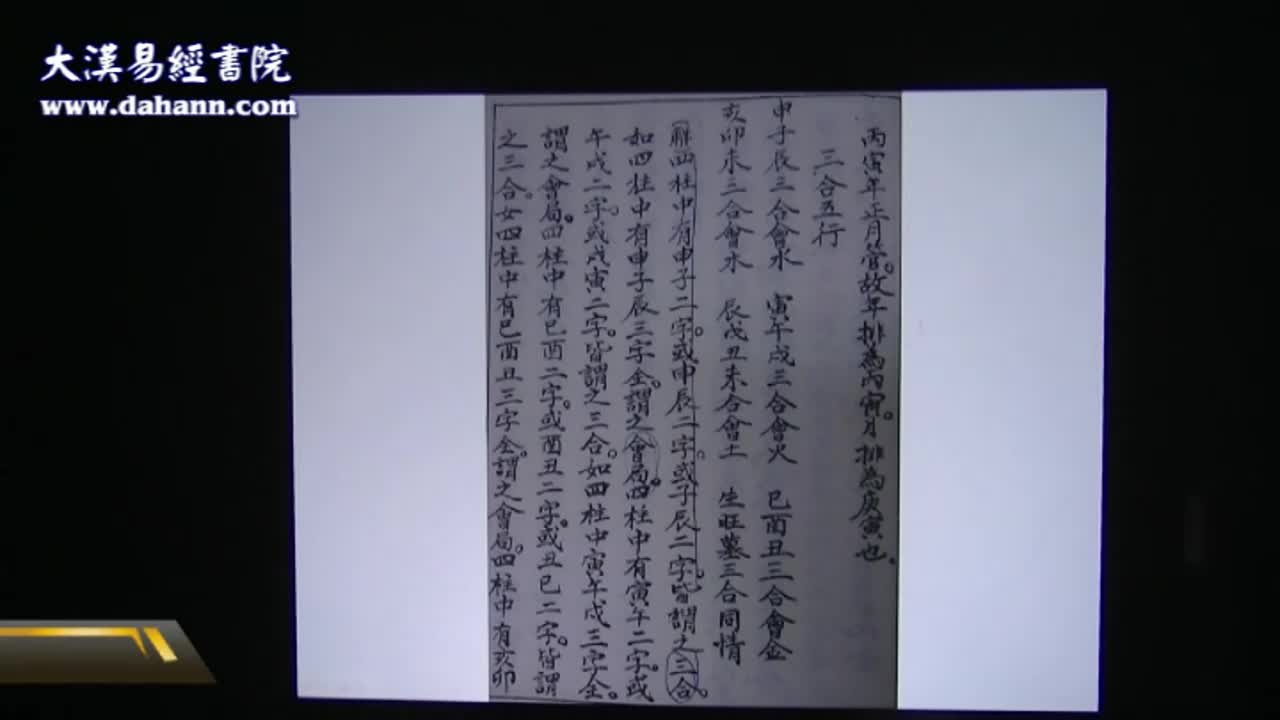 大漢易經書院
www.dahann.com
丙寅年正月管。故年排為丙寅。月排為庚寅也。
三合五行
申子辰三合會水 寅午戌三合會火 巳酉丑三合會金
亥卯未三合會木 辰戌丑未合會土 生旺墓三合同情
解四柱中有申子二字。或申辰二字。或子辰二字。皆謂之三合。
如四柱中有申子辰三字全。謂之會局。四柱中有寅午二字。或
午戌二字。或戌寅二字。皆謂之三合。如四柱中寅午戌三字全。
謂之會局。四柱中有巳酉二字。或酉丑二字。或丑巳二字。皆謂
之三合。如四柱中有巳酉丑三字全。謂之會局。四柱中有亥卯